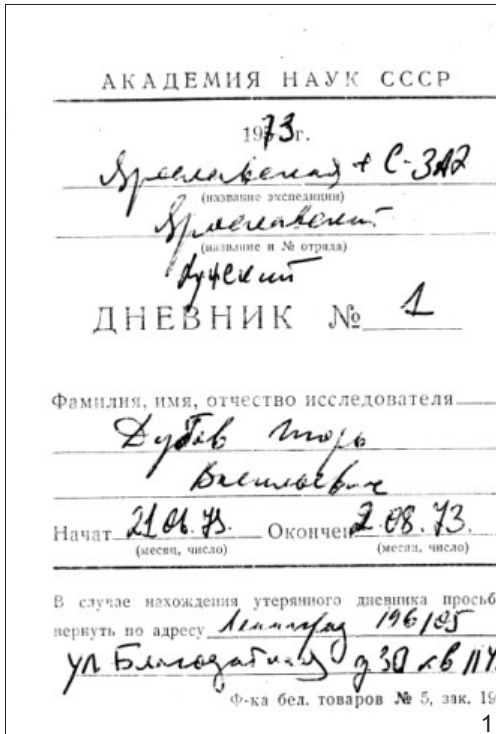 АКАДЕМИЯ НАУК СССР
1973г.
Ярославская + С-ЗАЭ
(название экспедиции)
Ярославский
(название и № отряда)
Лужский
ДНЕВНИК № 1
Фамилия, имя, отчество исследователя
Дубов Игорь
Васильевич
Начат 21.06.73. Окончен 2.08.73.
(месяц, число) (месяц, число)
В случае нахождения утерянного дневника просьб
вернуть по адресу Ленинград 196105
ул Благодатная д 30 кв
Ф-ка бел. товаров № 5, зак. 19
1